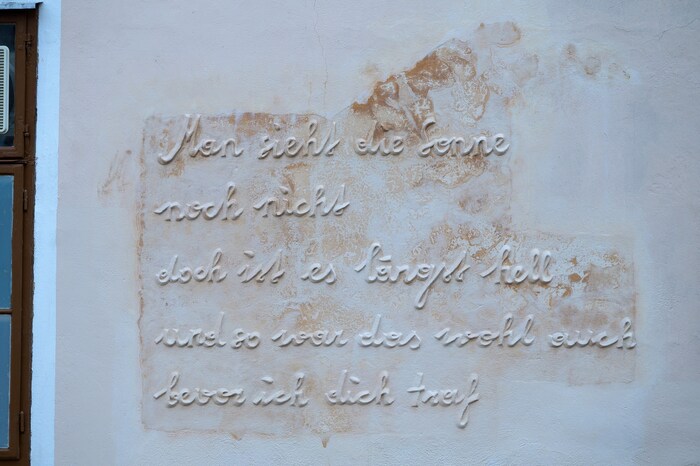 Man sieht die Sonne
noch nicht
doch ist es längst hell
und so war das wohl auch
bevor ich dich traf